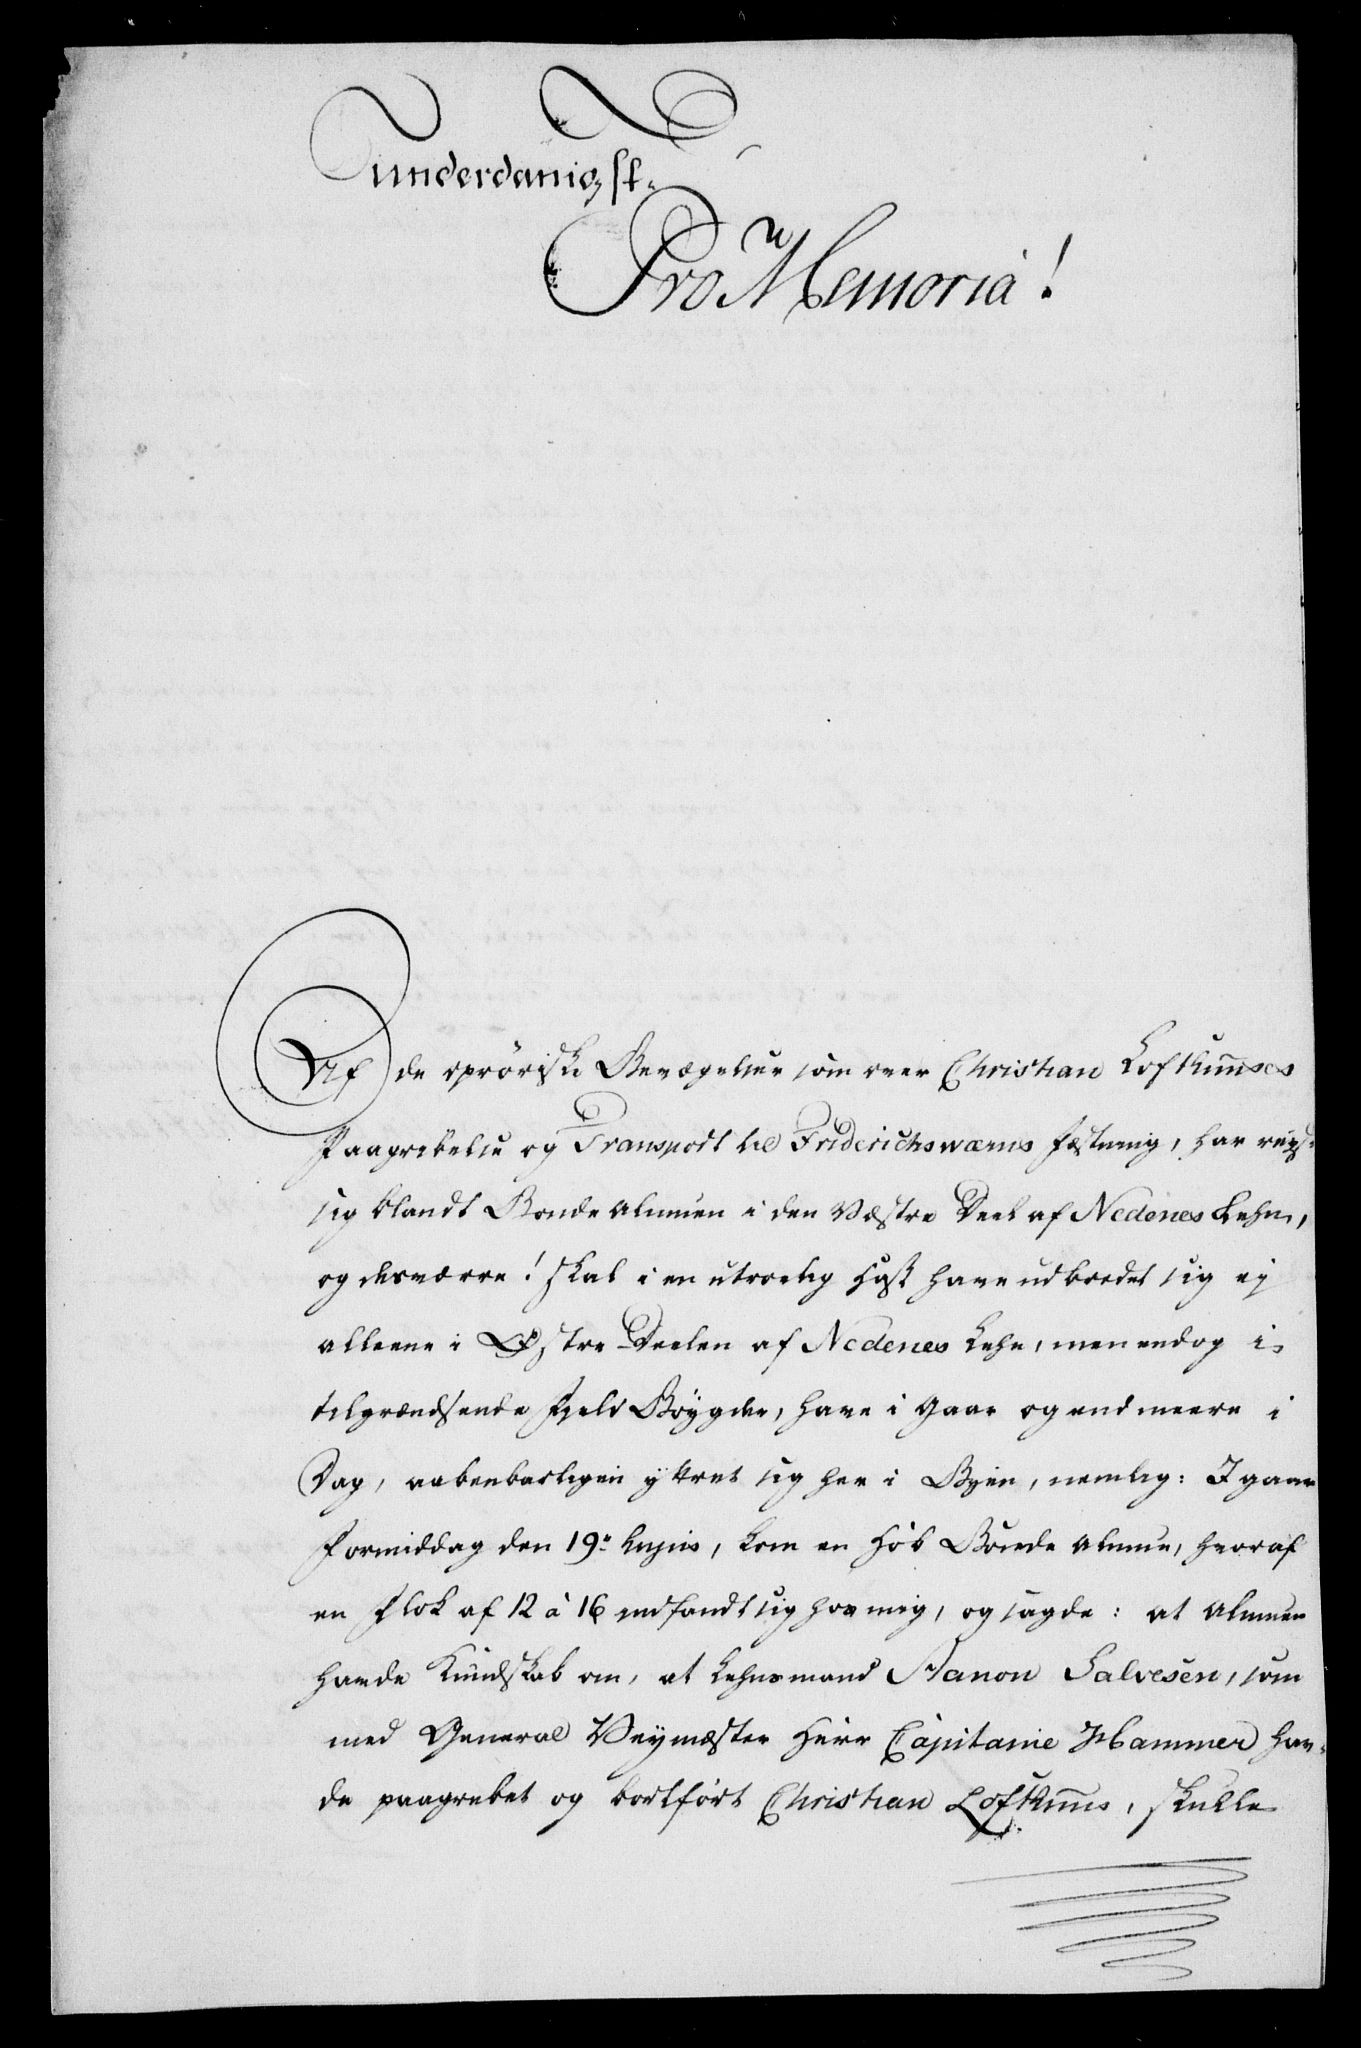 underdanigst
Pro Memoria!
Af de oprøriske Bevægelser som over Christian Lofthuuses
Paagribelse og Transport til Friderichswærns Fæstning, har reyst
sig blandt Bonde Almuen i den Væstre Deel af Nedenes Lehn,
og desværre! skal i en utroelig Hast have udbredet sig ej
alleene i Østre Deelen af Nedenes Lehn, men endog i
tilgrændsende Field Bøygder, have i Gaar og end meere i
Dag, aabenbarligen yttret sig her i Byen, nemlig: I gaar
Formiddag den 19de hujus, kom en Hob Bonde Almue, hvoraf
en Flok af 12 à 16 indfandt sig hos mig, og sagde: at Almuen
havde Kundskab om, at Lehnsmand Aanon Salvesen, som
med General Veymester Herr Capitaine Hammer hav-
de paagrebet og bortført Christian Lofthuus, skulle